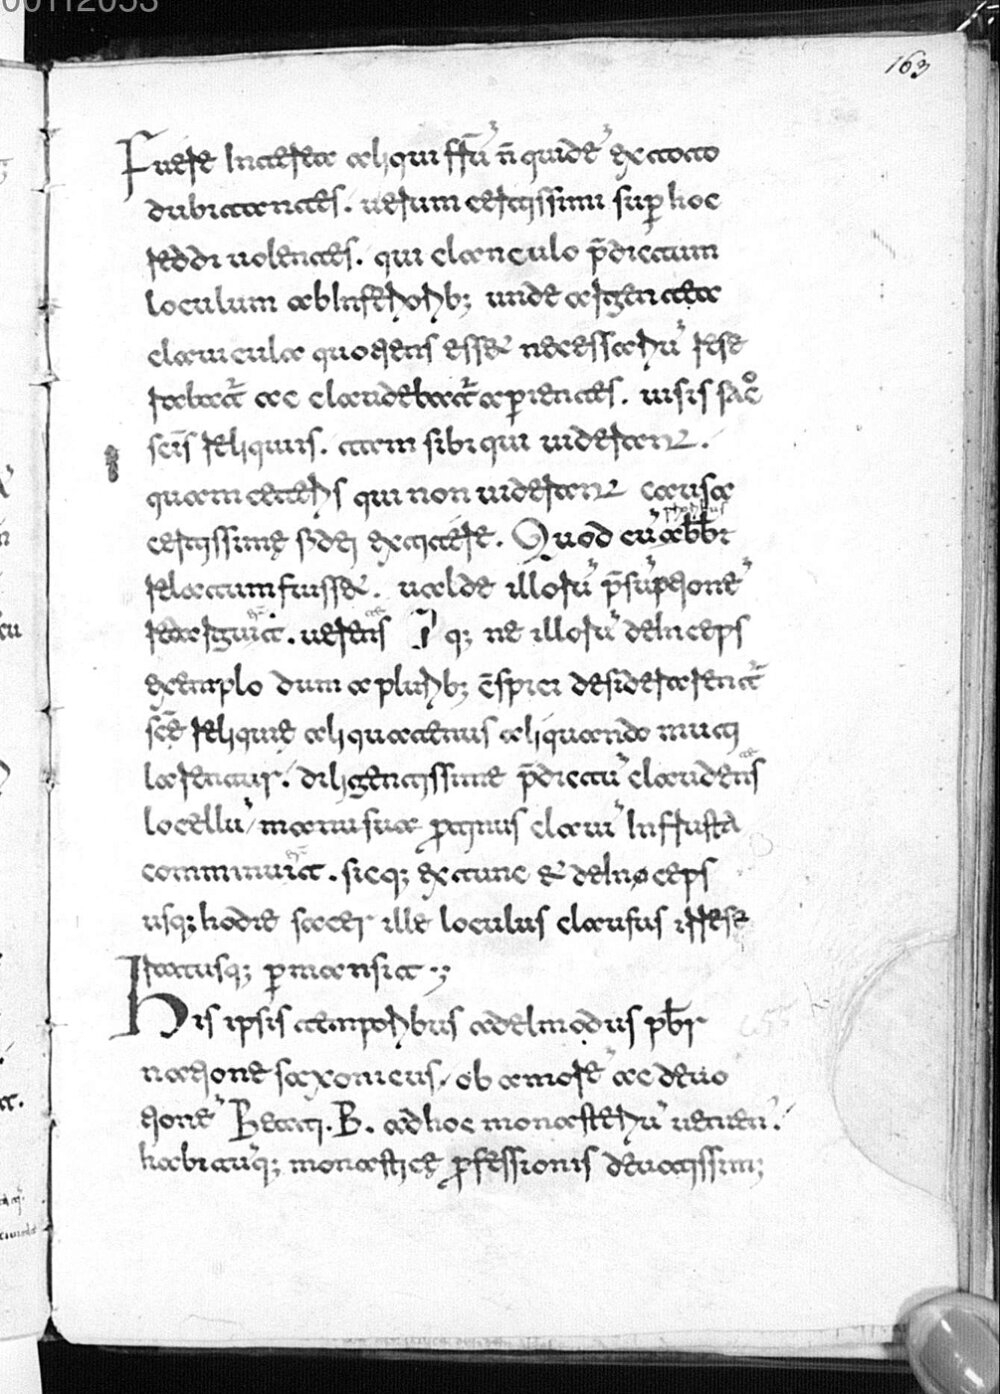 00112053
163
Fuere interea aliqui ffrm̄ n̄ quidē ex toto
dubitantes. uerum certissimi sup̱ hoc
reddi uolentes. qui clanculo p̄dictum
loculum ab inferiorib; unde argentea
clauicula quotiens esset necessariū rese
rabat᷑ ac claudebat᷑ ap̱ientes. uisis sac̊
sc̄is reliquiis. tam sibi qui uiderant.
quam ceteris qui non uiderant causa
certissimę fidei extitere. Quod cū abb̄i
relatum fuisset. ualde illorū p̄sūptionē
redarguit. uerens q; ne illorū deinceps
exemplo dum a plurib; c̄spici desiderarent᷑
sc̄ę reliquię aliquatenus aliquando muti
larentur. diligentissime p̄dictū claudens
locellū manu sua ꝓtinus clauī infusta
comminuit. sicq; ex tunc et deinceps
usq; hodie sacer ille loculus clausus irrese
ratusq; p̱mansit.;
His ipsis temporibus adelmodus pb̄r
natione saxonicus. ob amorē ac deuo
tionē Beati. B. ad hoc monasteriū ueniēn.
habitūq; monasticę ꝓfessionis deuotissim;